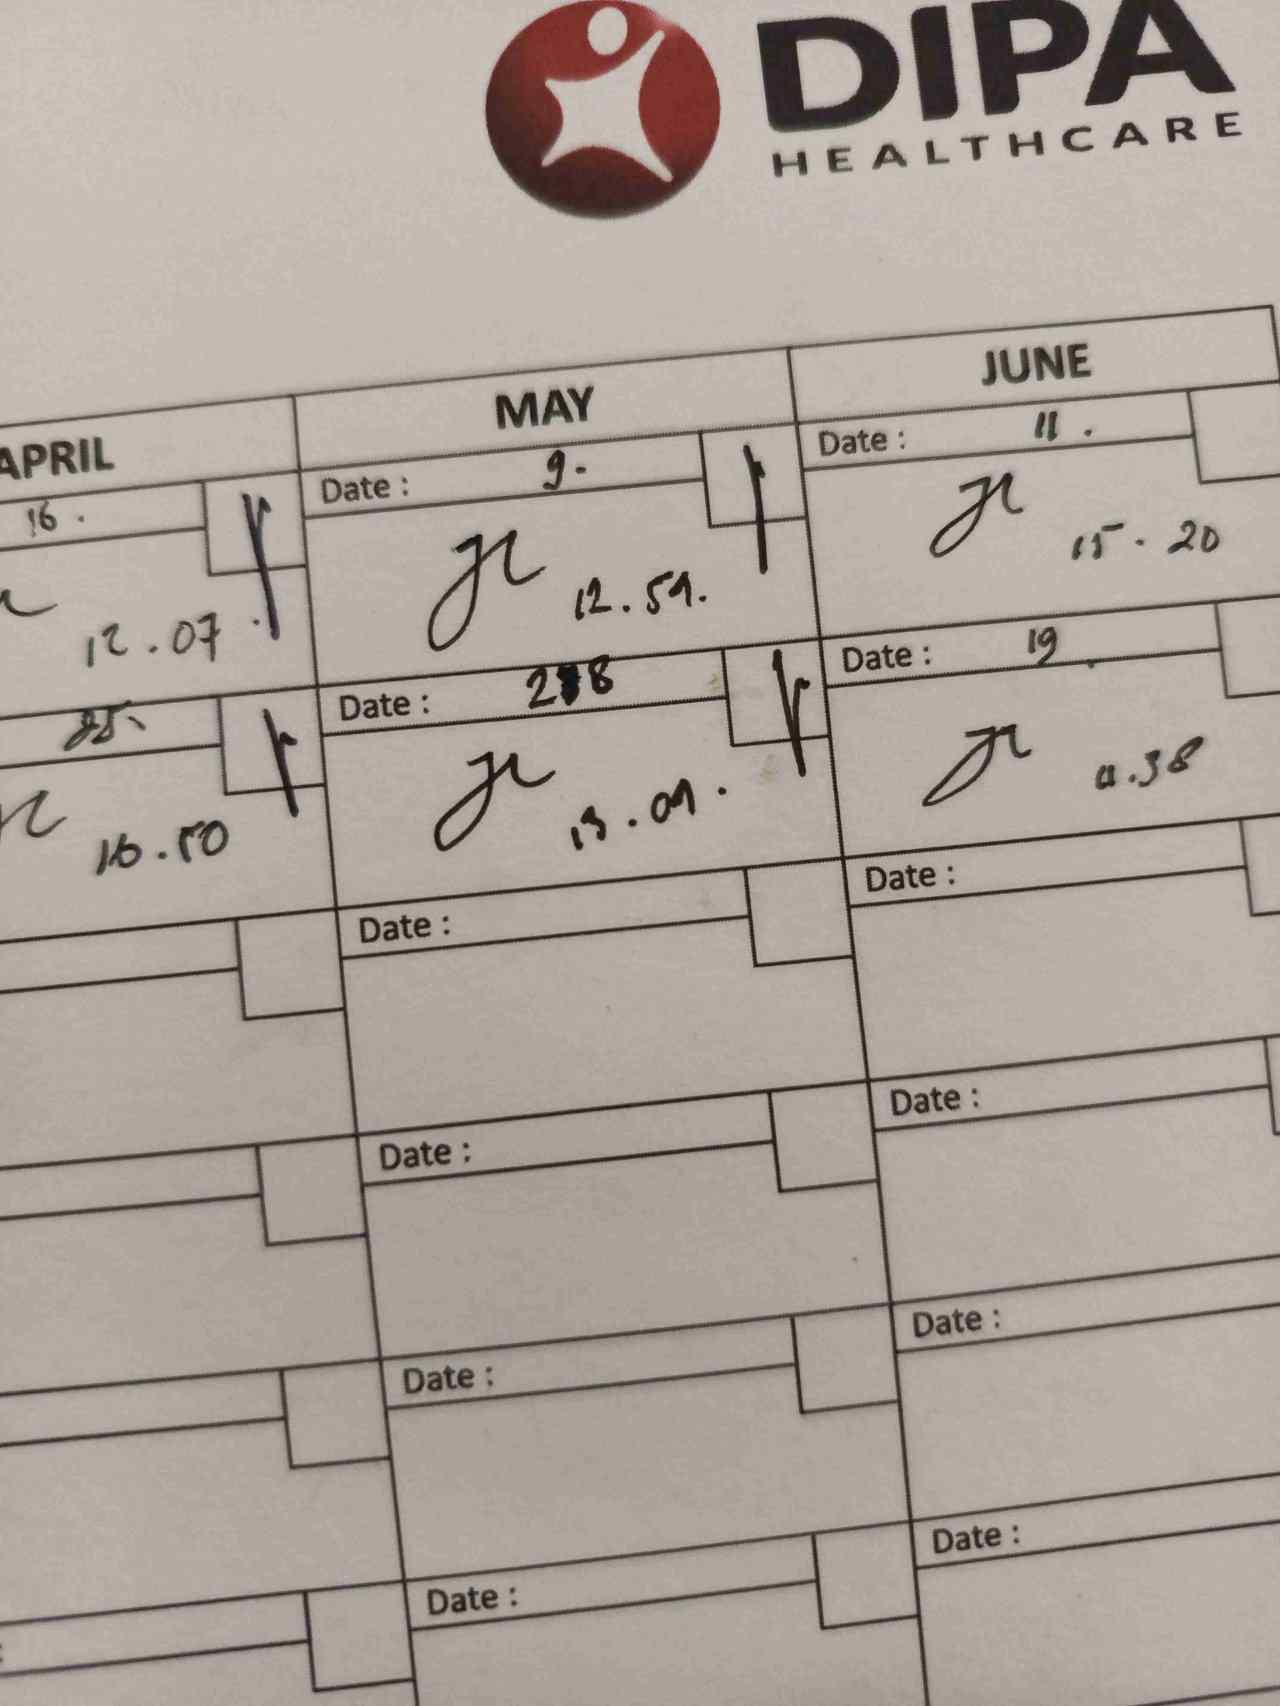 DIPA
HEALTHCARE
APRIL
MAY
JUNE
16.
Date : 9.
Date : 11.
12.07
12.59.
15.20
25.
Date : 28
Date : 19
16.50
13.09.
11.38
Date :
Date :
Date :
Date :
Date :
Date :
Date :
Date :